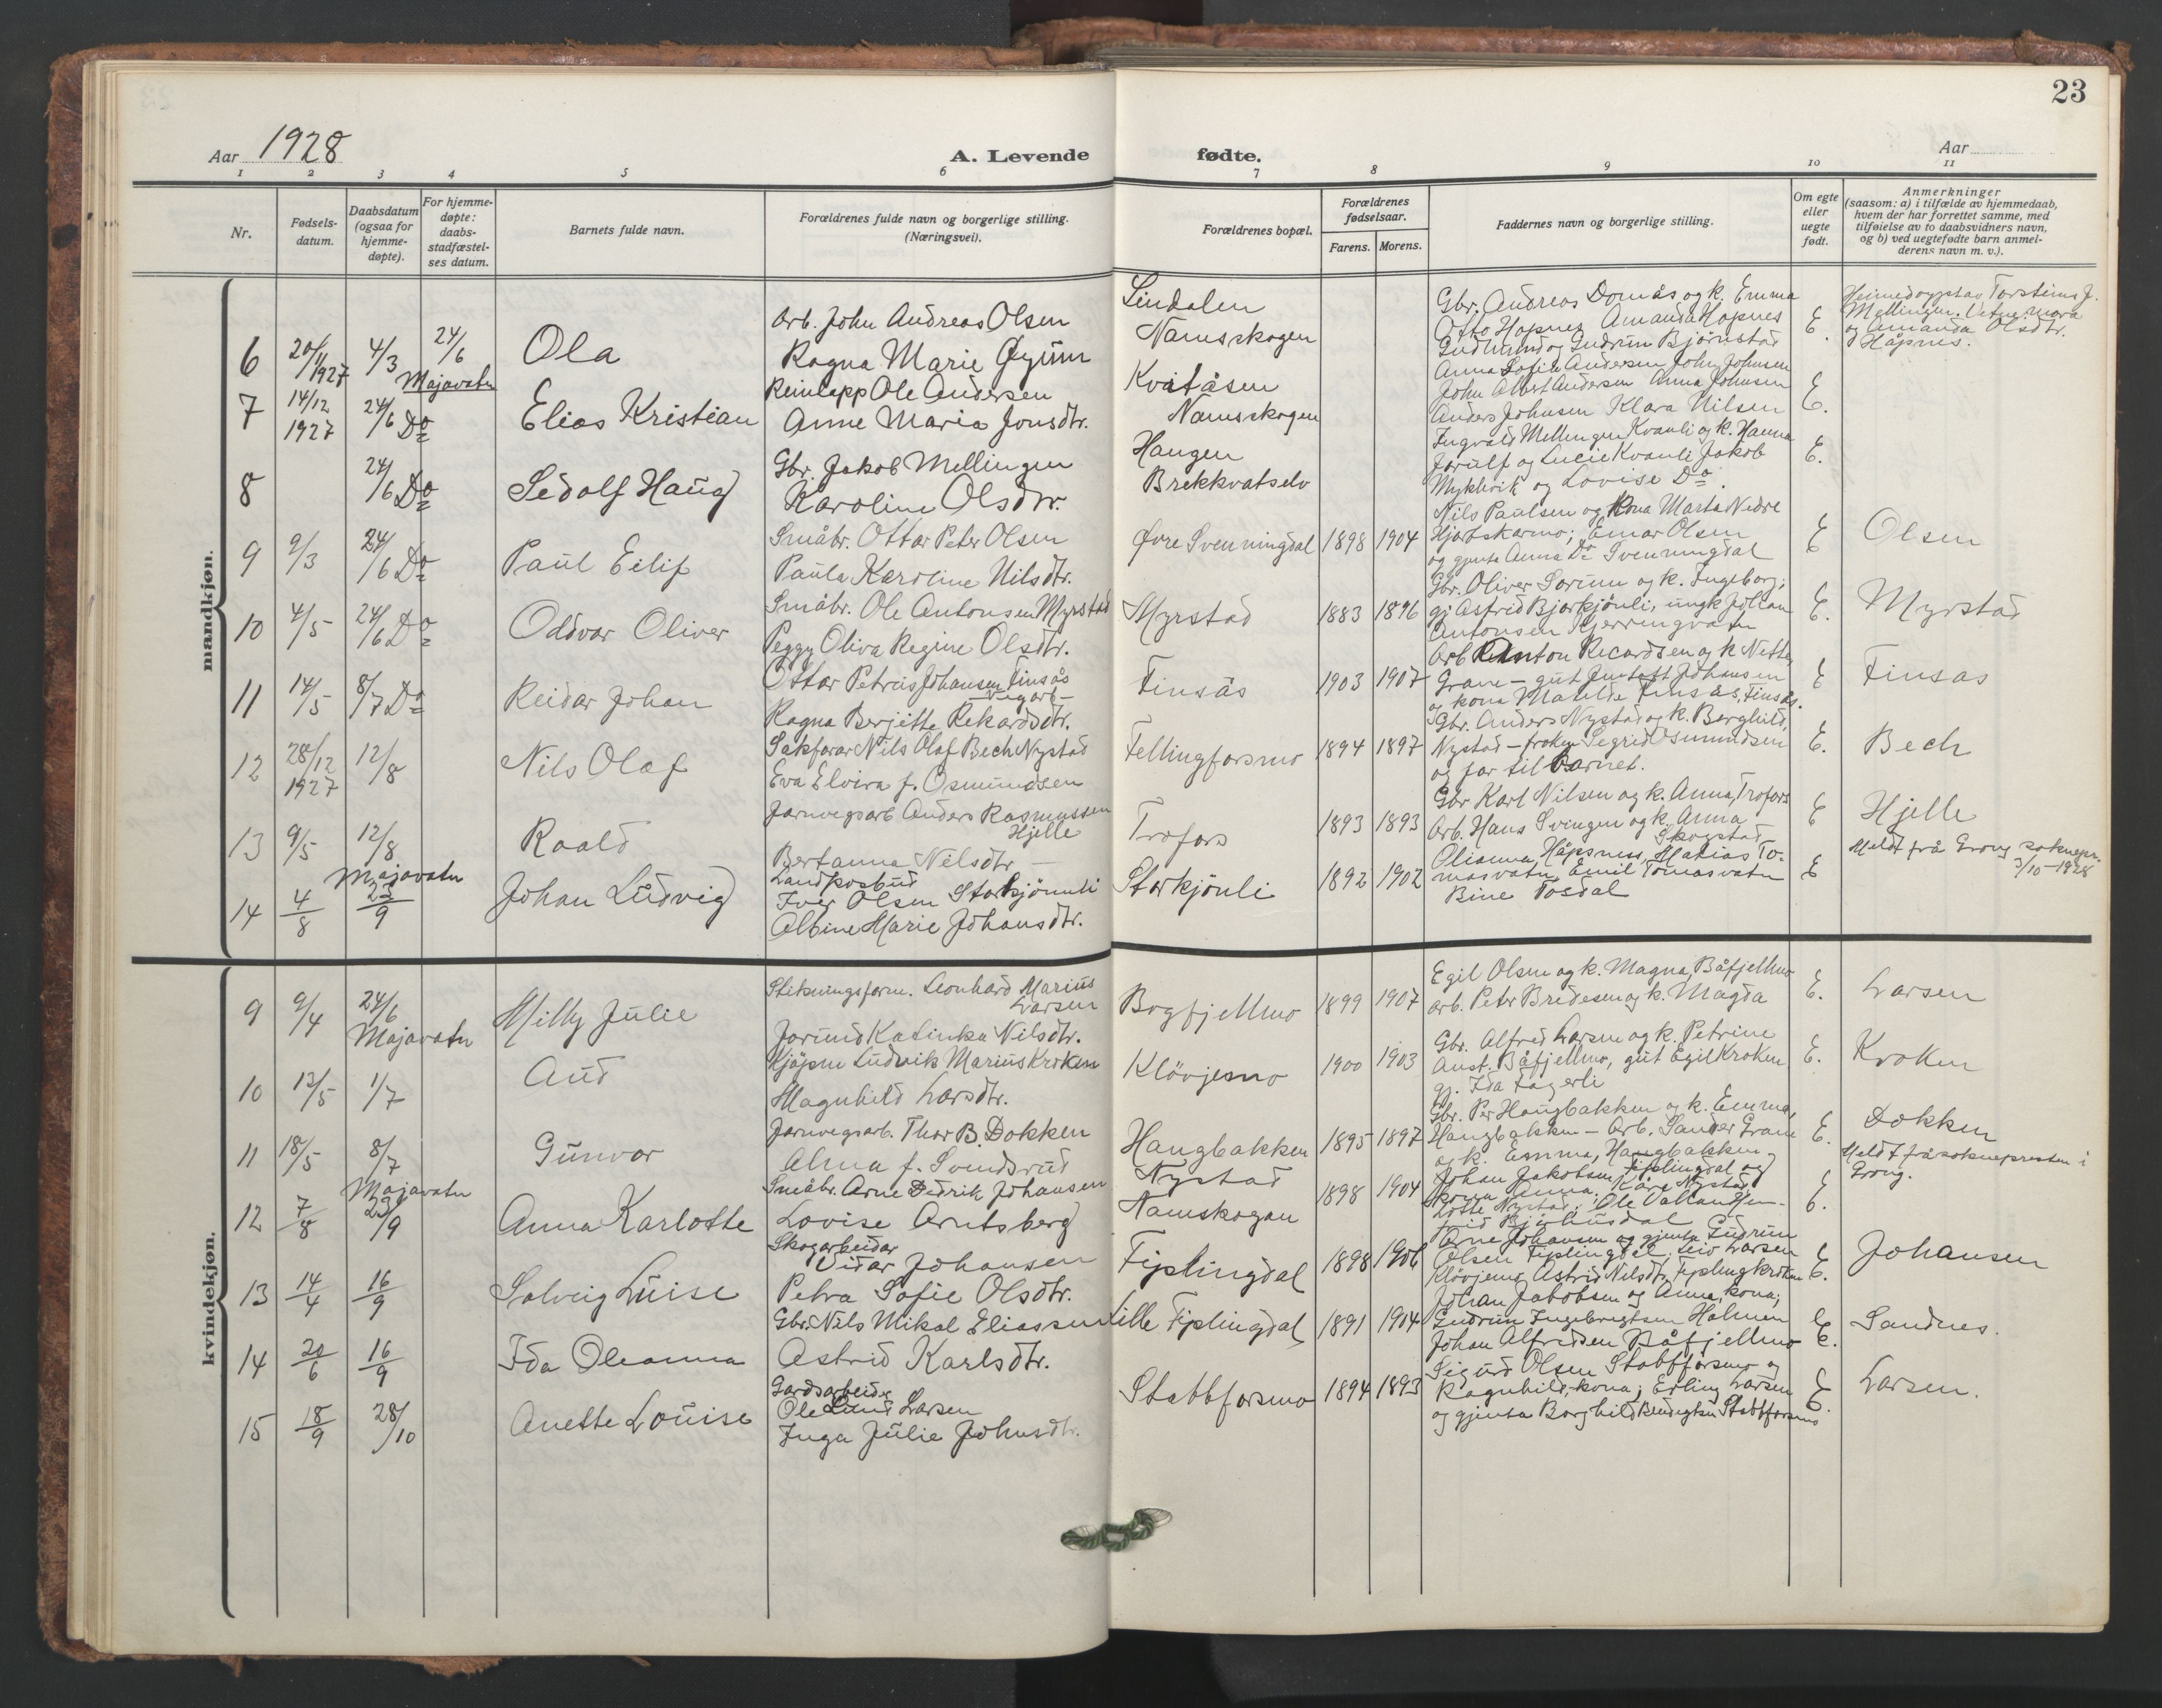 23
Aar 1928
A. Levende
fødte.
Aar
1 2 3 4 5 6 7 8 9 10 11
Nr.
Fødsels-
datum.
Daabsdatum
(ogsaa for
hjemme-
døpte).
For hjemme-
døpte:
daabs-
stadfæstel-
ses datum.
Barnets fulde navn.
Forældrenes fulde navn og borgerlige stilling.
(Næringsvei).
Forældrenes bopæl.
Forældrenes
fødselsaar.
Farens. Morens.
Faddernes navn og borgerlige stilling.
Om egte
eller
uegte
født.
Anmerkninger
(saasom: a) i tilfælde av hjemmedaab,
hvem der har forrettet samme, med
tilføielse av to daabsvidners navn,
og b) ved uegtefødte barn anmel-
derens navn m. v.).
mandkjøn.
6 20/11 1927 4/3 24/6 Majavatn
Ola
Arb. John Andreas Olsen
Ragna Marie Øyum
Lindalen
Namsskogen
Gbr. Andreas Domås og k. Emma
Otto Hapnes Amanda Hapnes
Gudmund og Gudrun Bjørnstad
E.
Heimedøypt av Torsteins J.
Mellingen. Vitne: mora
og Amanda Olsdtr.
Håpnes.
7 14/12 1927 24/6 Do
Elias Kristian
Reinlapp Ole Andersen
Anne Maria Jonsdtr.
Kvitåsen
Namsskogen
Anna Sofie Andersen John Johnsen
John Albert Andersen Anna Johnsen
Anders Johnsen Klara Nilsen
E.
8 24/6 Do
Sedolf Haug
Gbr. Jakob Mellingen
Karoline Olsdtr.
Haugen
Brekkvatselv
Ingvald Mellingen Kvanli og k. Hanna
Jørulf og Lucie Kvanli Jakob
Myklivik og Lovise Do.
E.
9 9/3 24/6 Do
Paul Eilif
Småbr. Ottar Peter Olsen
Paula Karoline Nilsdtr.
Øvre Svenningdal 1898 1904
Nils Paulsen og kona Marta Nedre
Hjortskarmo; Einar Olsen
og gjenta Anna Do Svenningdal
E
Olsen
10 4/5 24/6 Do
Oddvar Oliver
Småbr. Ole Antonsen Myrstad
Peggy Oliva Regine Olsdtr.
Myrstad 1883 1896
Gbr. Oliver Sørum og k. Ingeborg;
gj. Astrid Bjørkjönli, ungk. Johan
Antonsen Kjerringvatn
E.
Myrstad
11 14/5 8/7 Do
Reidar Johan
Ottar Petrus Johansen Finsås
vegarb-
Ragna Berjitta Rekardsdtr.
Finsås 1903 1907
Arb. Anton Ricardsen og k. Netty
Grane - gut Johansen
og kona Matilde Finsås, Finsås.
E
Finsas
12 28/12 1927 12/8
Nils Olaf
Sakførar Nils Olaf Bech Nystad
Eva Elvira f. Osmundsen
Fellingforsmo 1894 1897
Gbr. Anders Nystad og k. Borghild,
Nystad - frøken Segrid Osmundsen
og far til barnet.
E.
Bech
13 9/5 12/8
Roald
Jarnvegsarb Anders Rasmussen
Hjelle
Bertanna Nilsdtr —
Trofors 1893 1893
Gbr Karl Nilsen og k. Anna, Trofors
Arb. Hans Svingen og k. Anna
Skogstad
E
Hjelle
14 4/8 Majavatn 23/9
Johan Ludvig
Landpostbud
Iver Olsen Storkjönnli
Albine Marie Johansdtr.
Storkjönli 1892 1902
Olianna Håpsnes, Matias To-
masvatn, Emil Tomasvatn
Bine Tosdal
E
Meldt frå Grong soknepr.
3/10-1928
kvindekjøn.
9 9/4 24/6 Majavatn
Milly Julie
Stikningsform. Leonhard Marius
Larsen
Jorund Katinka Nilsdtr.
Bogfjellmo 1899 1907
Egil Olsen og k. Magna, Båfjellmo
arb. Peter Bredesen og k. Magda
E.
Larsen
10 12/5 1/7
Aud
Kjøpm Ludvik Marius Kroken
Magnhild Larsdtr.
Klövjesmo 1900 1903
Gbr. Alfred Larsen og k. Petrine
Aust. Båfjellmo, gut Egil Kroken
gj. Ida Fagerli
E.
Kroken
11 18/5 8/7
Gunvor
Jarnvegsarb. Thor B. Dokken
Alma f. Svendsrud
Haugbakken 1895 1897
Gbr. Per Haugbakken og k. Emma,
Haugbakken - Arb. Sander Grane
og k. Emma, Haugbakken
E.
Dokken
12 7/8 Majavatn 23/9
Anna Karlotte
Småbr. Arne Dedrik Johansen
Lovise Arntsberg
Nystad
Namskogan 1898 1904
Johan Jakobsen Fiplingdal og
kona Anna; Kåre Nystad
Lotte Nystad; Ole Vallan
Bjørhusdal
E.
Meldt frå soknepresten i
Grong.
13 14/4 16/9
Solveig Luise
Skogarbeidar
Vidar Johansen
Petra Sofie Olsdtr.
Fiplingdal 1898 1906
Arne Johansen og gjenta Gudrun
Olsen Fiplingdal; Leiv Larsen
Klövjemo, Astrid Nilsdtr. Fiplingkroken
E.
Johansen
14 20/6 16/9
Ida Oleanna
Gbr. Nils Mikal Eliassen
Astrid Karlsdtr.
Lille Fiplingdal 1891 1904
Johan Jakobsen og Anna, kona;
Gudrun Ingebrigtsen Holmen
Johan Alfredsen Båfjellmo
E.
Sandnes.
15 18/9 28/10
Anette Louise
Gardsarbeider
Ole Lund Larsen
Inga Julie Johnsdtr.
Stabbforsmo 1894 1893
Sigurd Olsen Stabbforsmo og
Ragnhild, kona; Erling Larsen
og gjenta Borghild Bendigtsen Stabbforsmo
E.
Larsen.